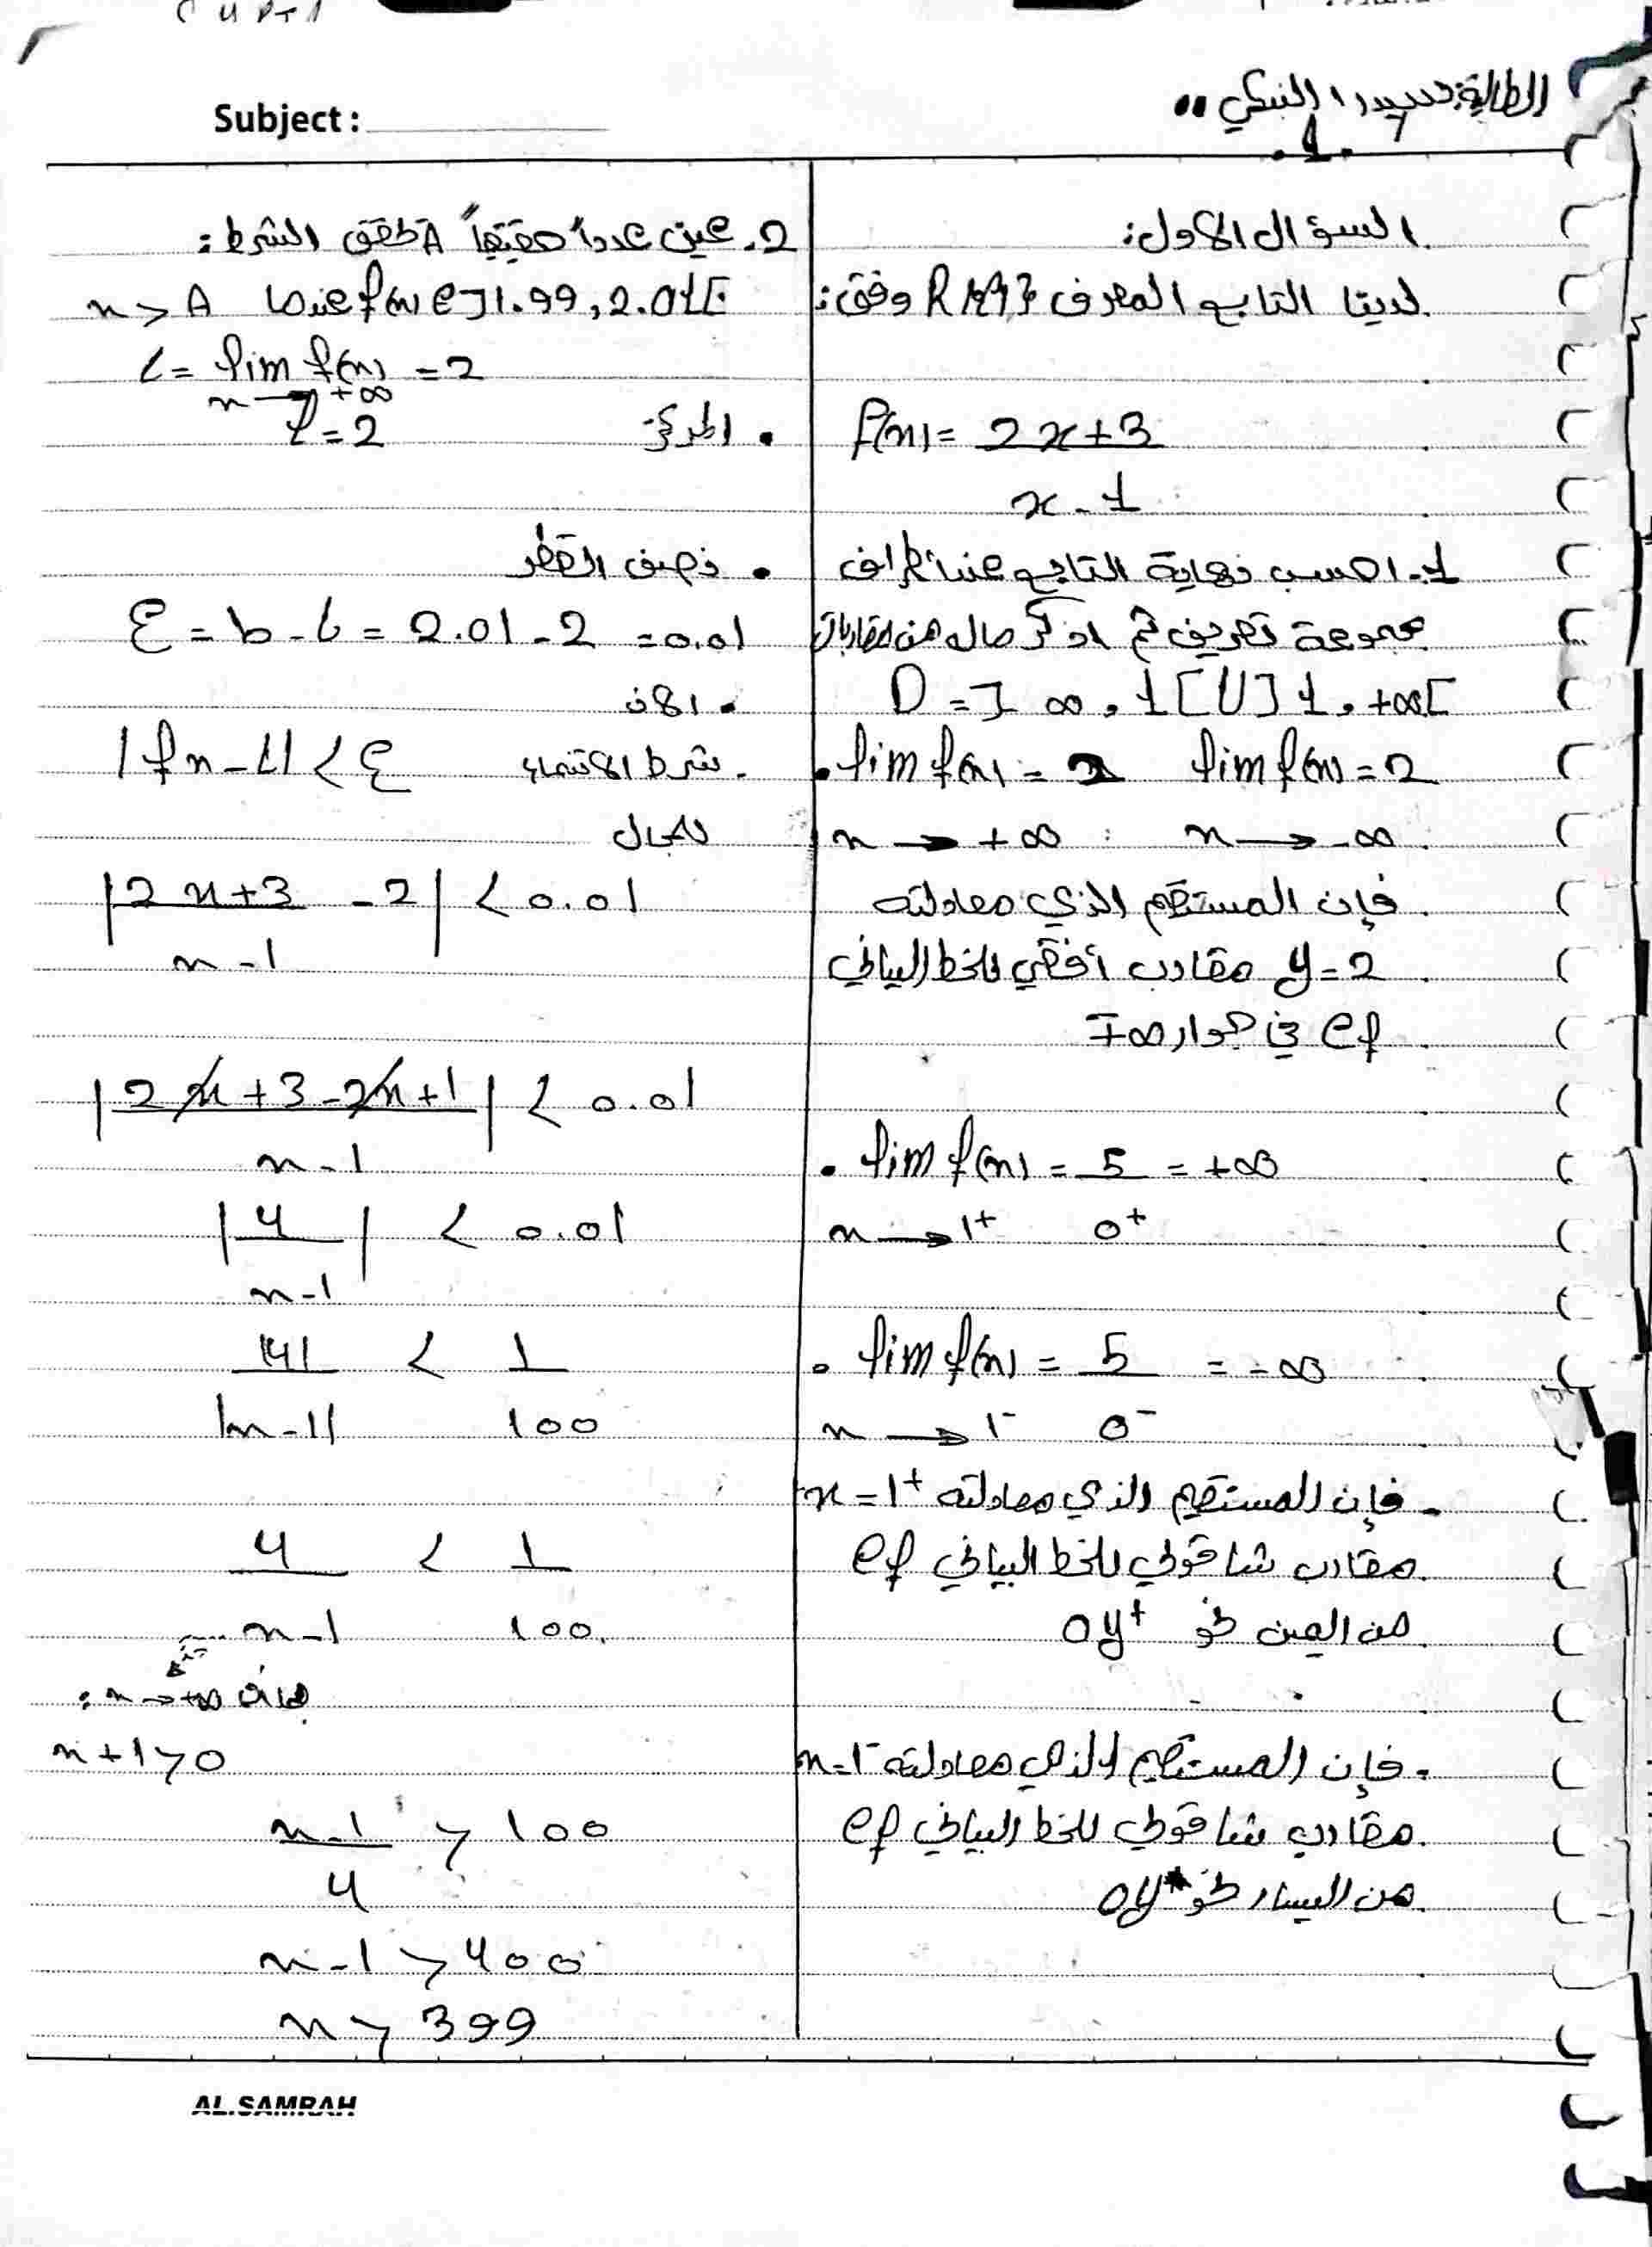 Subject :
الطالبة:
.1.
السؤال الاول:
لدينا التابع المعرف R\{1} وفق:
f(x) = 2x+3
x - 1
1- احسب نهاية التابع عند أطراف
مجموعة تعريف ثم اذكر ماله من مقاربات
D = ]-∞, 1[ U ]1, +∞[
. lim f(x) = 2 lim f(x) = 2
x → +∞ x → -∞
فإن المستقيم الذي معادلته
y = 2 مقارب أفقي للخط البياني
cf في جوار ∓∞
. lim f(x) = 5 = +∞
x → 1+ 0+
. lim f(x) = 5 = -∞
x → 1- 0-
- فإن المستقيم الذي معادلته x = 1+
مقارب شاقولي للخط البياني cf
من اليمين نحو oy+
- فإن المستقيم الذي معادلته x=1-
مقارب شاقولي للخط البياني cf
من اليسار نحو oy
2. عين عدداً حقيقياً A تحقق الشرط:
x > A عندما f(x) ∈ ]1.99, 2.01[
L = lim f(x) = 2
x → +∞
. المركز L = 2
. نصف القطر
ε = b - L = 2.01 - 2 = 0.01
. الان
- شرط الانتماء |fx - L| < ε
للمجال
|2x+3 - 2| < 0.01
x - 1
|2x + 3 - 2x + 1| < 0.01
x - 1
|4| < 0.01
x - 1
|4| < 1
|x - 1| 100
4 < 1
x - 1 100
بما أن x → +∞ :
x + 1 > 0
x - 1 > 100
4
x - 1 > 400
x > 399
AL.SAMRAH